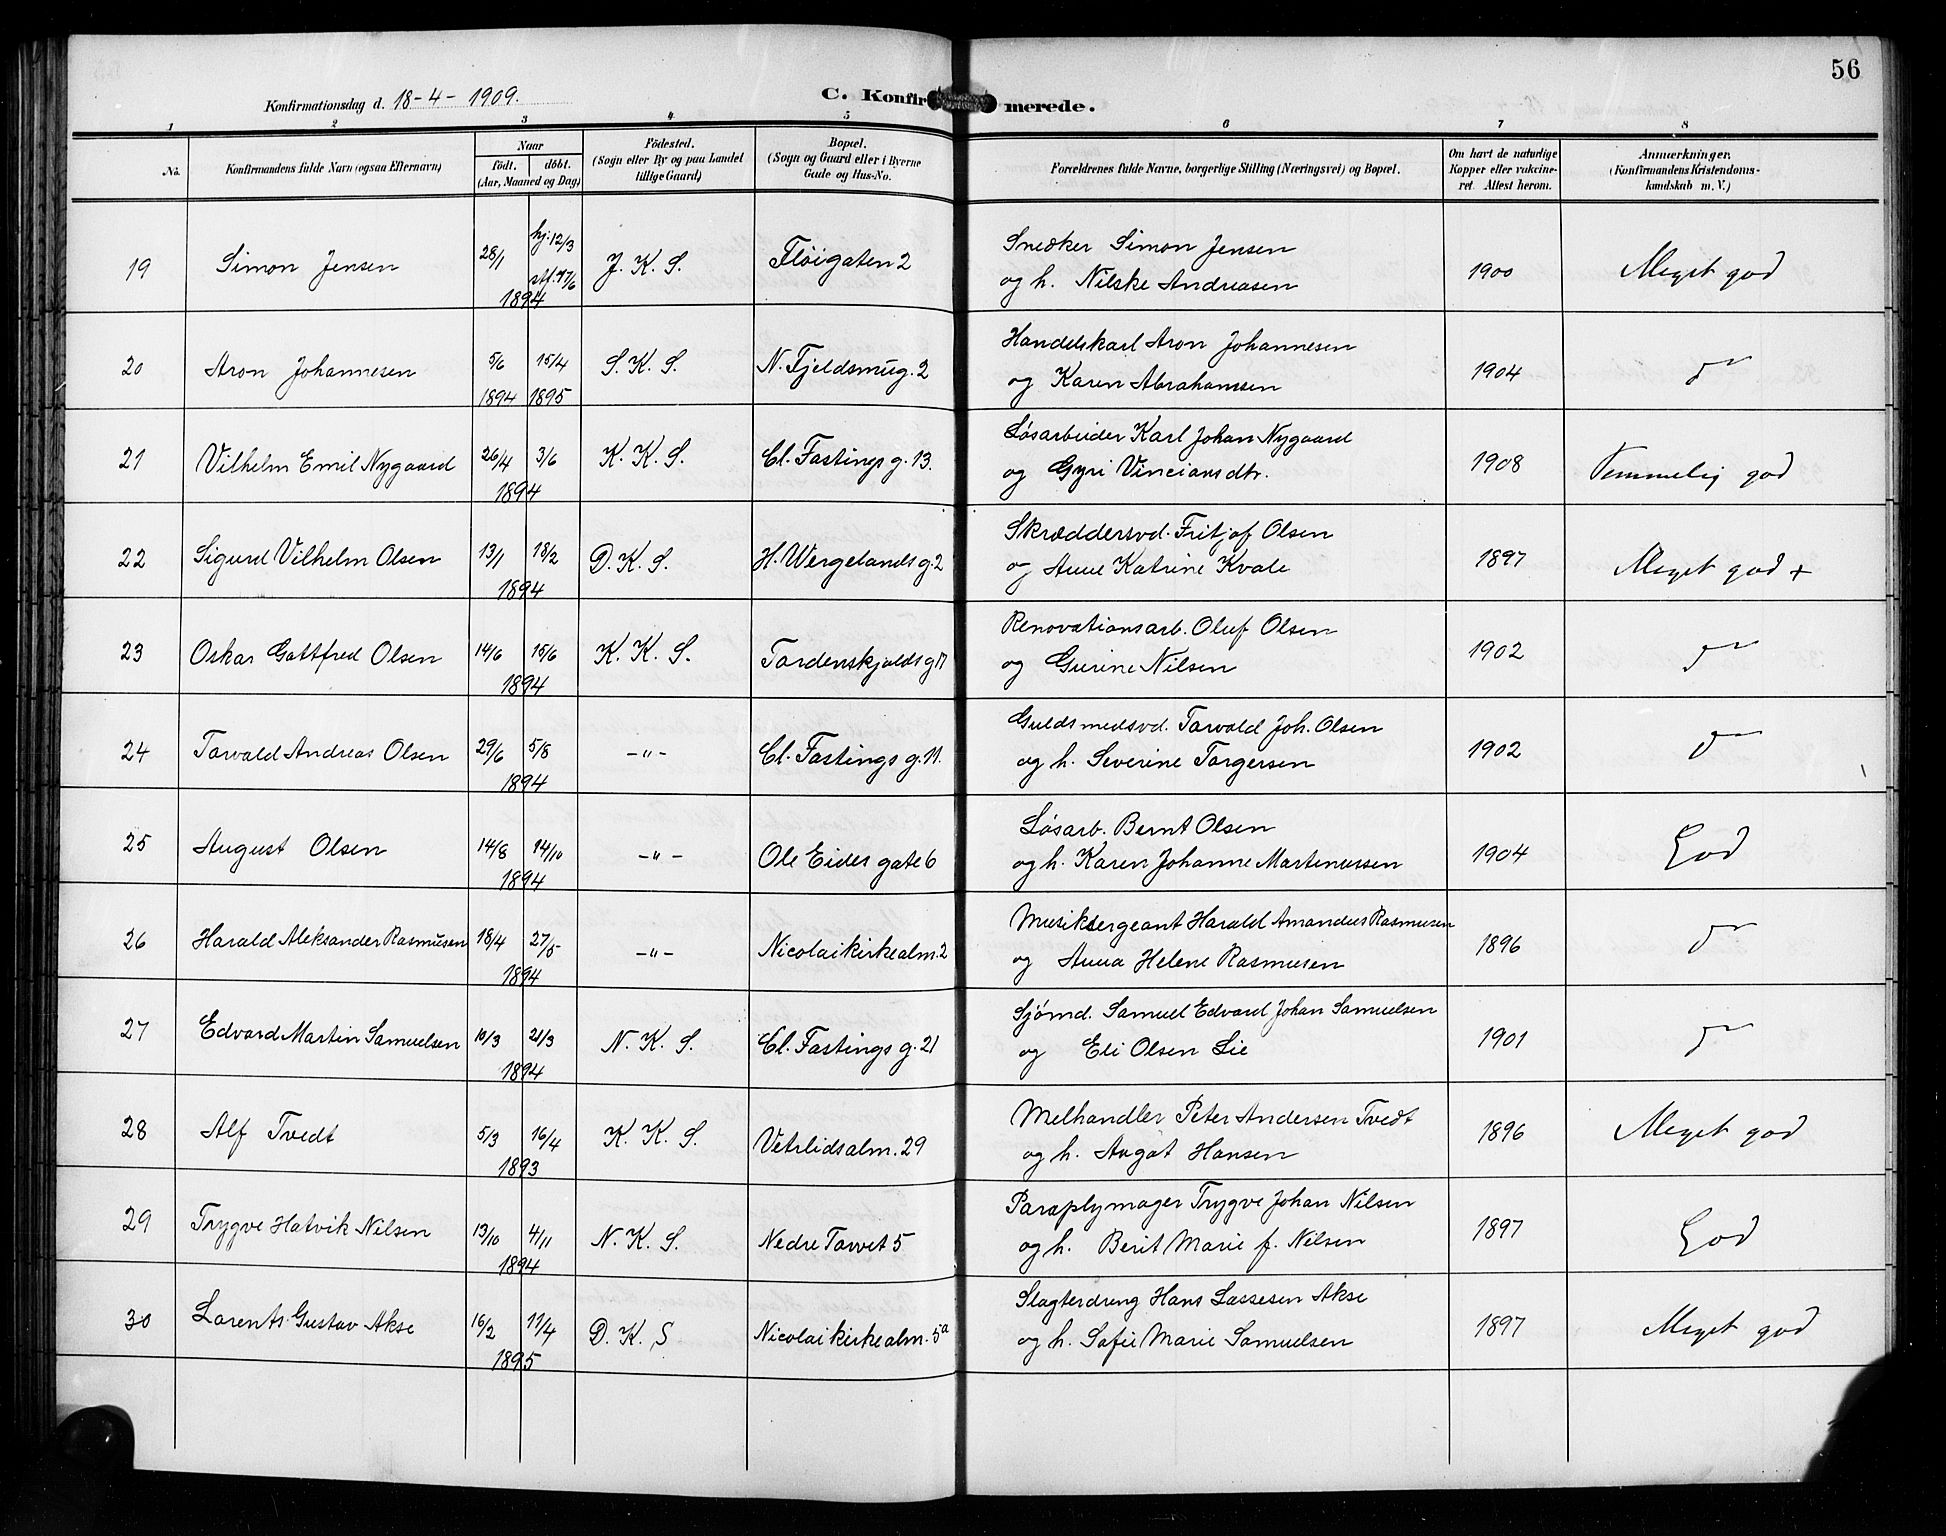 56
Konfirmationsdag d. 18-4-1909.
C. Konfirmerede.
1 2 3 4 5 6 7 8
No.
Konfirmandens fulde Navn (ogsaa Efternavn)
Naar
födt. döbt.
(Aar, Maaned og Dag)
Födested.
(Sogn eller By og paa Landet
tillige Gaard)
Bopæl.
(Sogn og Gaard eller i Byerne
Gade og Hus-No.
Forældrenes fulde Navne, borgerlige Stilling (Næringsvei) og Bopæl.
Om havt de naturlige
Kopper eller vakcine-
ret. Attest herom.
Anmærkninger.
(Konfirmandens Kristendoms-
kundskab m. V.)
19 Simon Jensen 28/1 hj. 12/3 stf. 17/6 1894 J. K. S. Fløigaten 2
Snedker Simon Jensen
og h. Nilske Andreasen 1900 Meget god
20 Aron Johannesen 5/6 1894 15/4 1895 S. K. S. N. Fjeldsmug. 2
Handelskarl Aron Johannesen
og Karen Abrahamsen 1904 do
21 Vilhelm Emil Nygaard 26/4 3/6 1894 K. K. S. Cl. Fastings g. 13.
Løsarbeider Karl Johan Nygaard
og Gyri Vinciansdtr. 1908 Temmelig god
22 Sigurd Vilhelm Olsen 13/1 18/2 1894 D. K. S. H. Wergelands g. 2
Skræddersvd. Fritjof Olsen
og Anne Katrine Kvale 1897 Meget god +
23 Oskar Gottfred Olsen 14/6 15/6 1894 K. K. S. Tordenskjolds g 17
Renovationsarb. Oluf Olsen
og Gurine Nilsen 1902 do
24 Torvald Andreas Olsen 29/6 5/8 1894 -"- Cl. Fastings g. 11.
Guldsmedsvd. Torvald Joh. Olsen
og h. Severine Torgersen 1902 do
25 August Olsen 14/8 14/10 1894 -"- Ole Eides gate 6
Løsarb. Bernt Olsen
og h. Karen Johanne Martinussen 1904 God
26 Harald Aleksander Rasmusen 18/4 27/5 1894 -"- Nicolaikirkealm. 2
Musiksergeant Harald Amandus Rasmusen
og Anna Helene Rasmusen 1896 do
27 Edvard Martin Samuelsen 10/3 21/3 1894 N. K. S. Cl. Fastings g. 21
Sjømd. Samuel Edvard Johan Samuelsen
og Eli Olsen Lie 1901 do
28 Alf Tvedt 5/3 16/4 1893 K. K. S. Vetrlidsalm. 29
Melhandler Peter Andersen Tvedt
og h. Avgot Hansen 1896 Meget god
29 Trygve Hatvik Nilsen 13/10 4/11 1894 N. K. S. Nedre Torvet 5
Paraplymager Trygve Johan Nilsen
og h. Berit Marie f. Nilsen 1897 God
30 Lorents Gustav Akse 16/2 11/4 1895 D. K. S Nicolaikirkealm. 5a
Slagterdreng Hans Lassesen Akse
og h. Sofie Marie Samuelsen 1897 Meget god